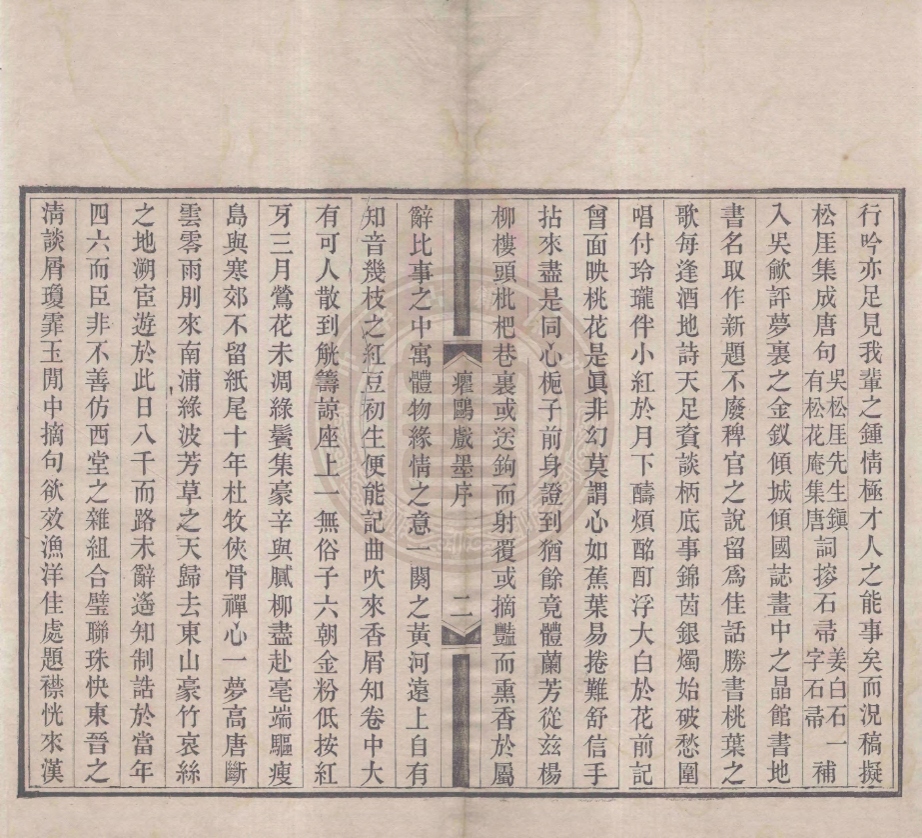 行吟亦足見我輩之鍾情極才人之能事矣而況稿擬
松厓集成唐句吳松厓先生鎮有松花庵集唐詞摻石帚姜白石一字石帚補
入吳歈評夢裏之金釵傾城傾國誌畫中之晶館書地
書名取作新題不廢稗官之說留爲佳話勝書桃葉之
歌每逢酒地詩天足資談柄底事錦茵銀燭始破愁圍
唱付玲瓏伴小紅於月下醻煩酩酊浮大白於花前記
曾面映桃花是眞非幻莫謂心如蕉葉易捲難舒信手
拈來盡是同心梔子前身證到猶餘竟體蘭芳從兹楊
柳樓頭枇杷巷裏或送鉤而射覆或摘豔而熏香於屬
癯鷗戲墨序 二
辭比事之中寓體物緣情之意一闋之黃河遠上自有
知音幾枝之紅豆初生便能記曲吹來香屑知卷中大
有可人散到觥籌諒座上一無俗子六朝金粉低按紅
牙三月鶯花未凋綠鬢集豪辛與膩柳盡赴毫端驅瘦
島與寒郊不留紙尾十年杜牧俠骨禪心一夢高唐斷
雲零雨別來南浦綠波芳草之天歸去東山豪竹哀絲
之地溯宦遊於此日八千而路未辭遙知制誥於當年
四六而臣非不善仿西堂之雜組合璧聯珠快東晉之
淸談屑瓊霏玉閒中摘句欲效漁洋佳處題襟恍來漢